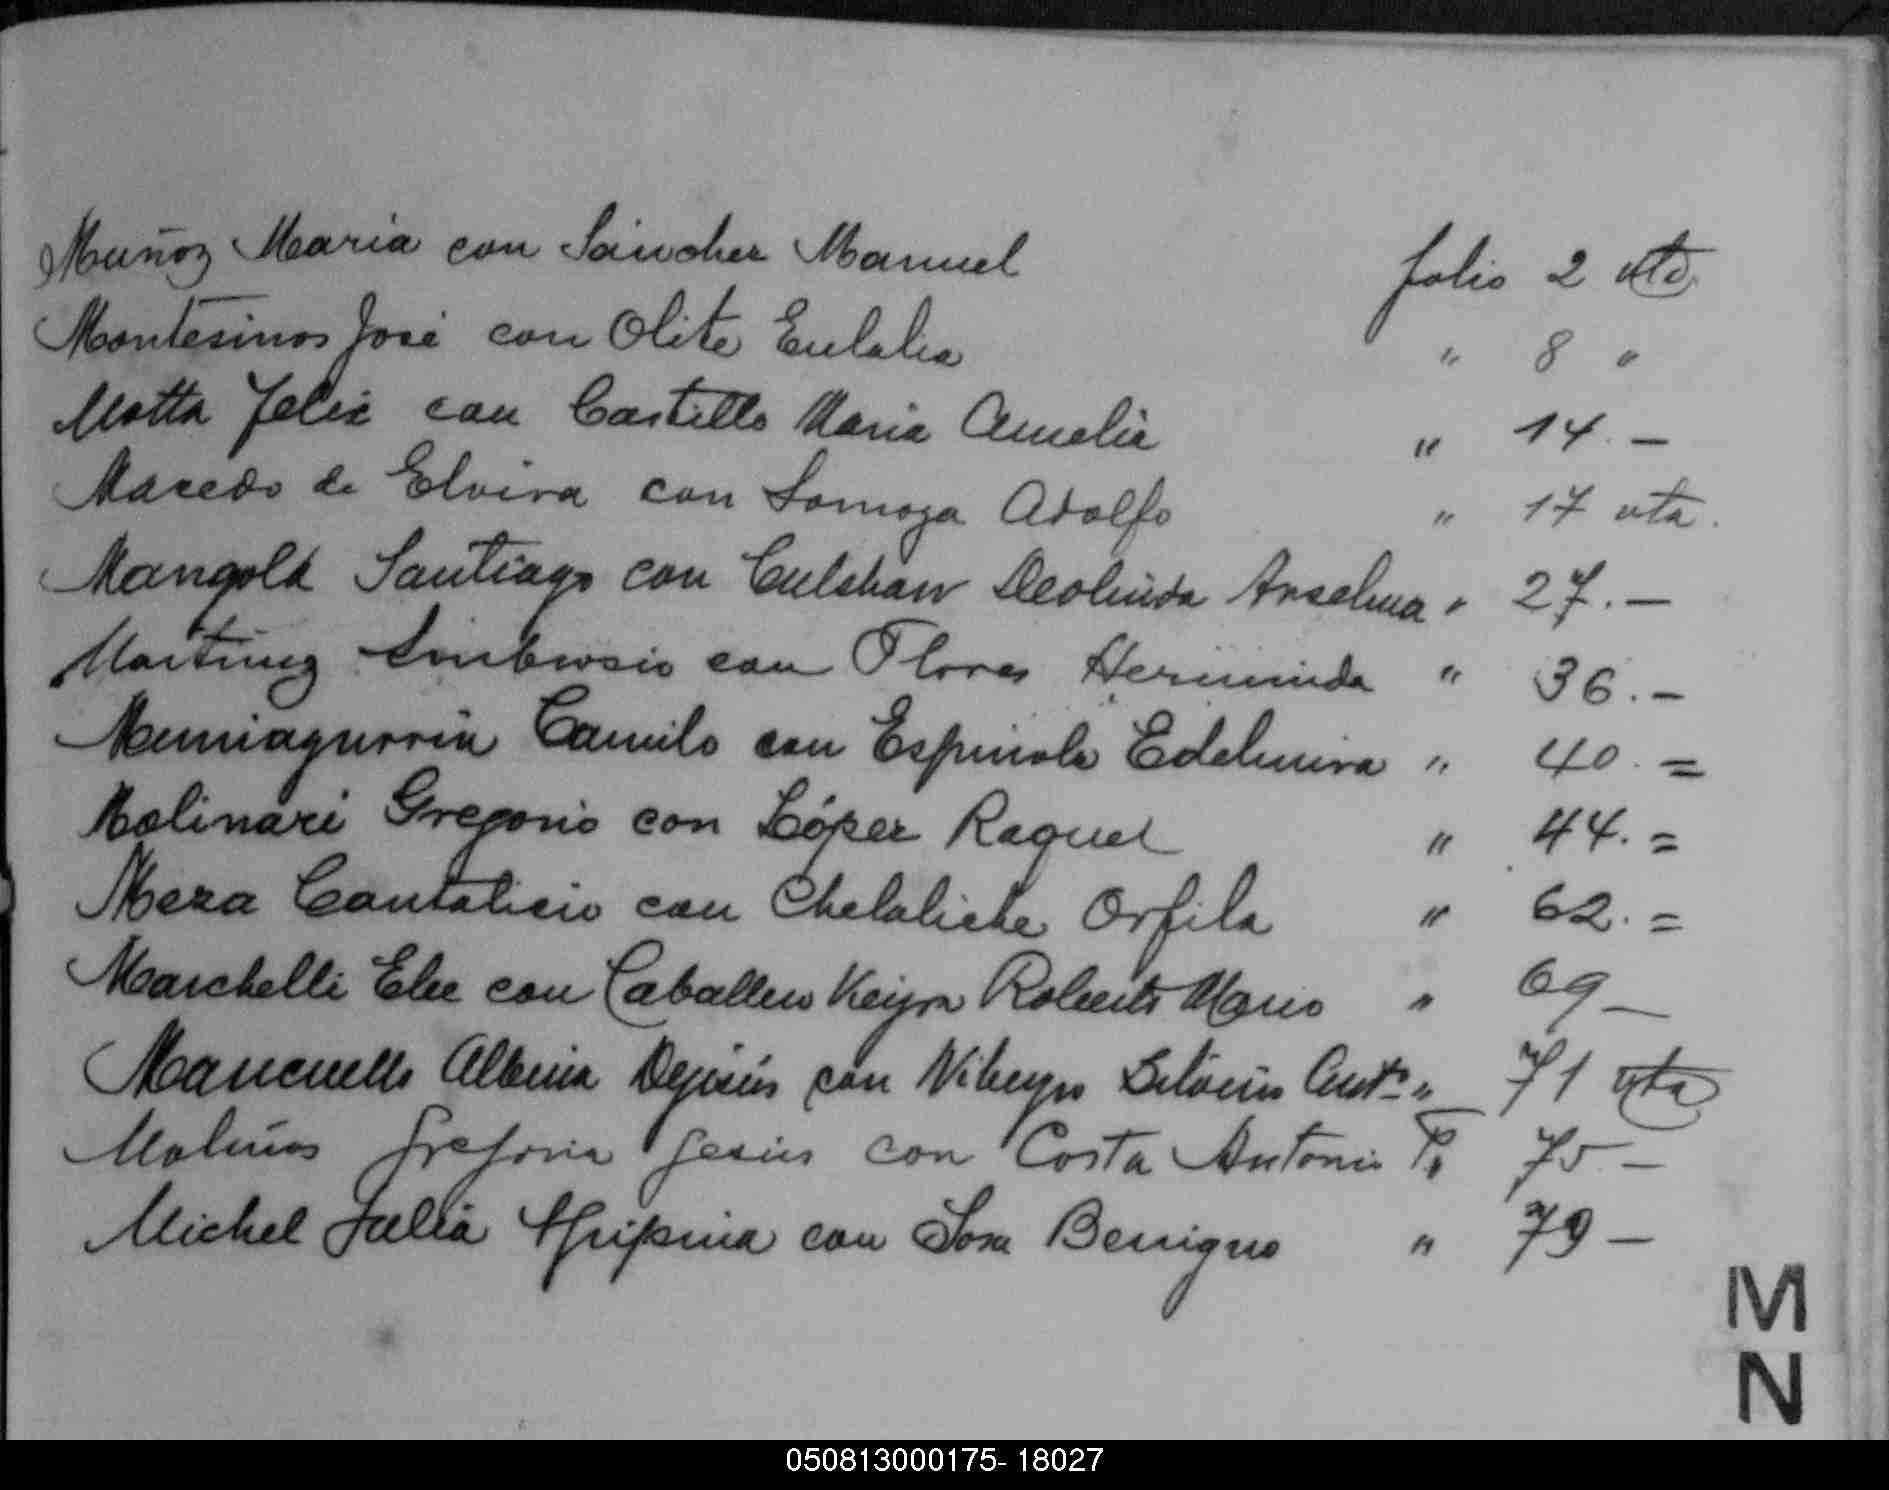 Muñoz María con Sánchez Manuel folio 2 vta
Montesinos José con Olite Eulalia " 8 "
Motta Felix con Castillo Maria Amelia " 14. -
Macedo de Elvira con Somoza Adolfo " 17 vta.
Mangold Santiago con Culshaw Deolinda Anselma " 27. -
Martinez Ambrosio con Flores Herminida " 36. -
Muniagurria Camilo con Espinola Edelmira " 40. =
Molinari Gregorio con López Raquel " 44. =
Meza Cantalicio con Chelaliche Orfila " 62. =
Marchelli Elve con Caballero Roberto Mario " 69 -
Albina Dejesús con Silverio " 71 vta
Molinos Gregoria Jesús con Costa Antonio " 75 -
Michel Julia Agripina con Sosa Benigno " 79 -
M
N
050813000175- 18027